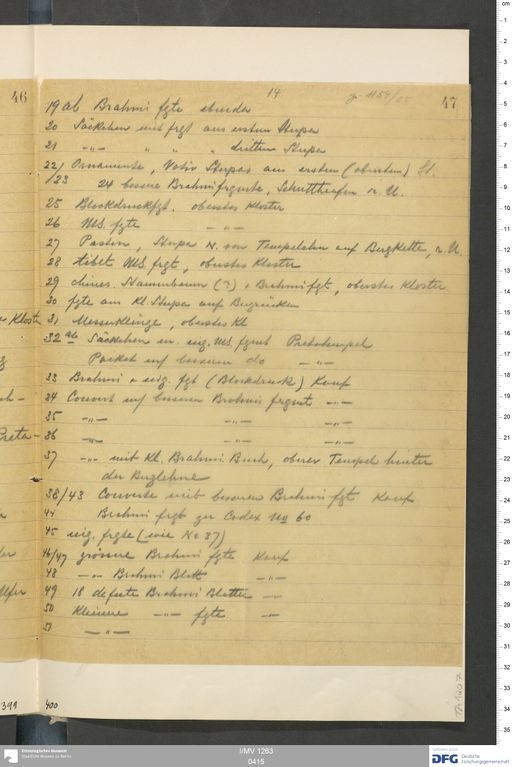 46
14
47
19 ab Brahmi fgte ebenda
20 Säckchen mit frgt aus erstem Stupa
21 -„- „ „ „ drittem Stupa
22/ Ornamente, Votiv Stupas aus erstem (oberstem) St.
/23 24 bessere Brahmifrgmte, Schutthaufen n. U.
25 Blockdruckfgt. oberstes Kloster
26 MS. fgte -„-
27 Pasten, Stupa N. von Tempelchen auf Bergkette, n. U.
28 tibet MS frgt, oberstes Kloster
29 chines. Stammbaum (?) + Brahmi fgt, oberstes Kloster
30 fgte aus Kl. Stupa auf Bergrücken
31 Messerklinge, oberstes Kl
32 ab Säckchen m. uig. MS. fgmt Pretatempel
Packet mit besseren do -„-
33 Brahmi + uig. fgt (Blockdruck) Kauf
34 Couvert mit besseren Brahmi frgmts -„-
35 -„- -„- -„-
36 -„- -„- -„-
37 -„- mit Kl. Brahmi Buch, oberer Tempel hinter
der Berglehne
38/43 Couverte mit besseren Brahmi fgt Kauf
44 Brahmi frgt zu Codex No 60
45 uig. frgte (wie No 37)
46/47 grössere Brahmi fgte Kauf
48 -„- Brahmi Blatt -„-
49 18 defecte Brahmi Blätter -„-
50 Kleinere -„- fgte -„-
51 -„-
399
400
TA 1207
Ethnologisches Museum
Staatliche Museen zu Berlin
I/MV 1263
0415
DFG Deutsche
Forschungsgemeinschaft